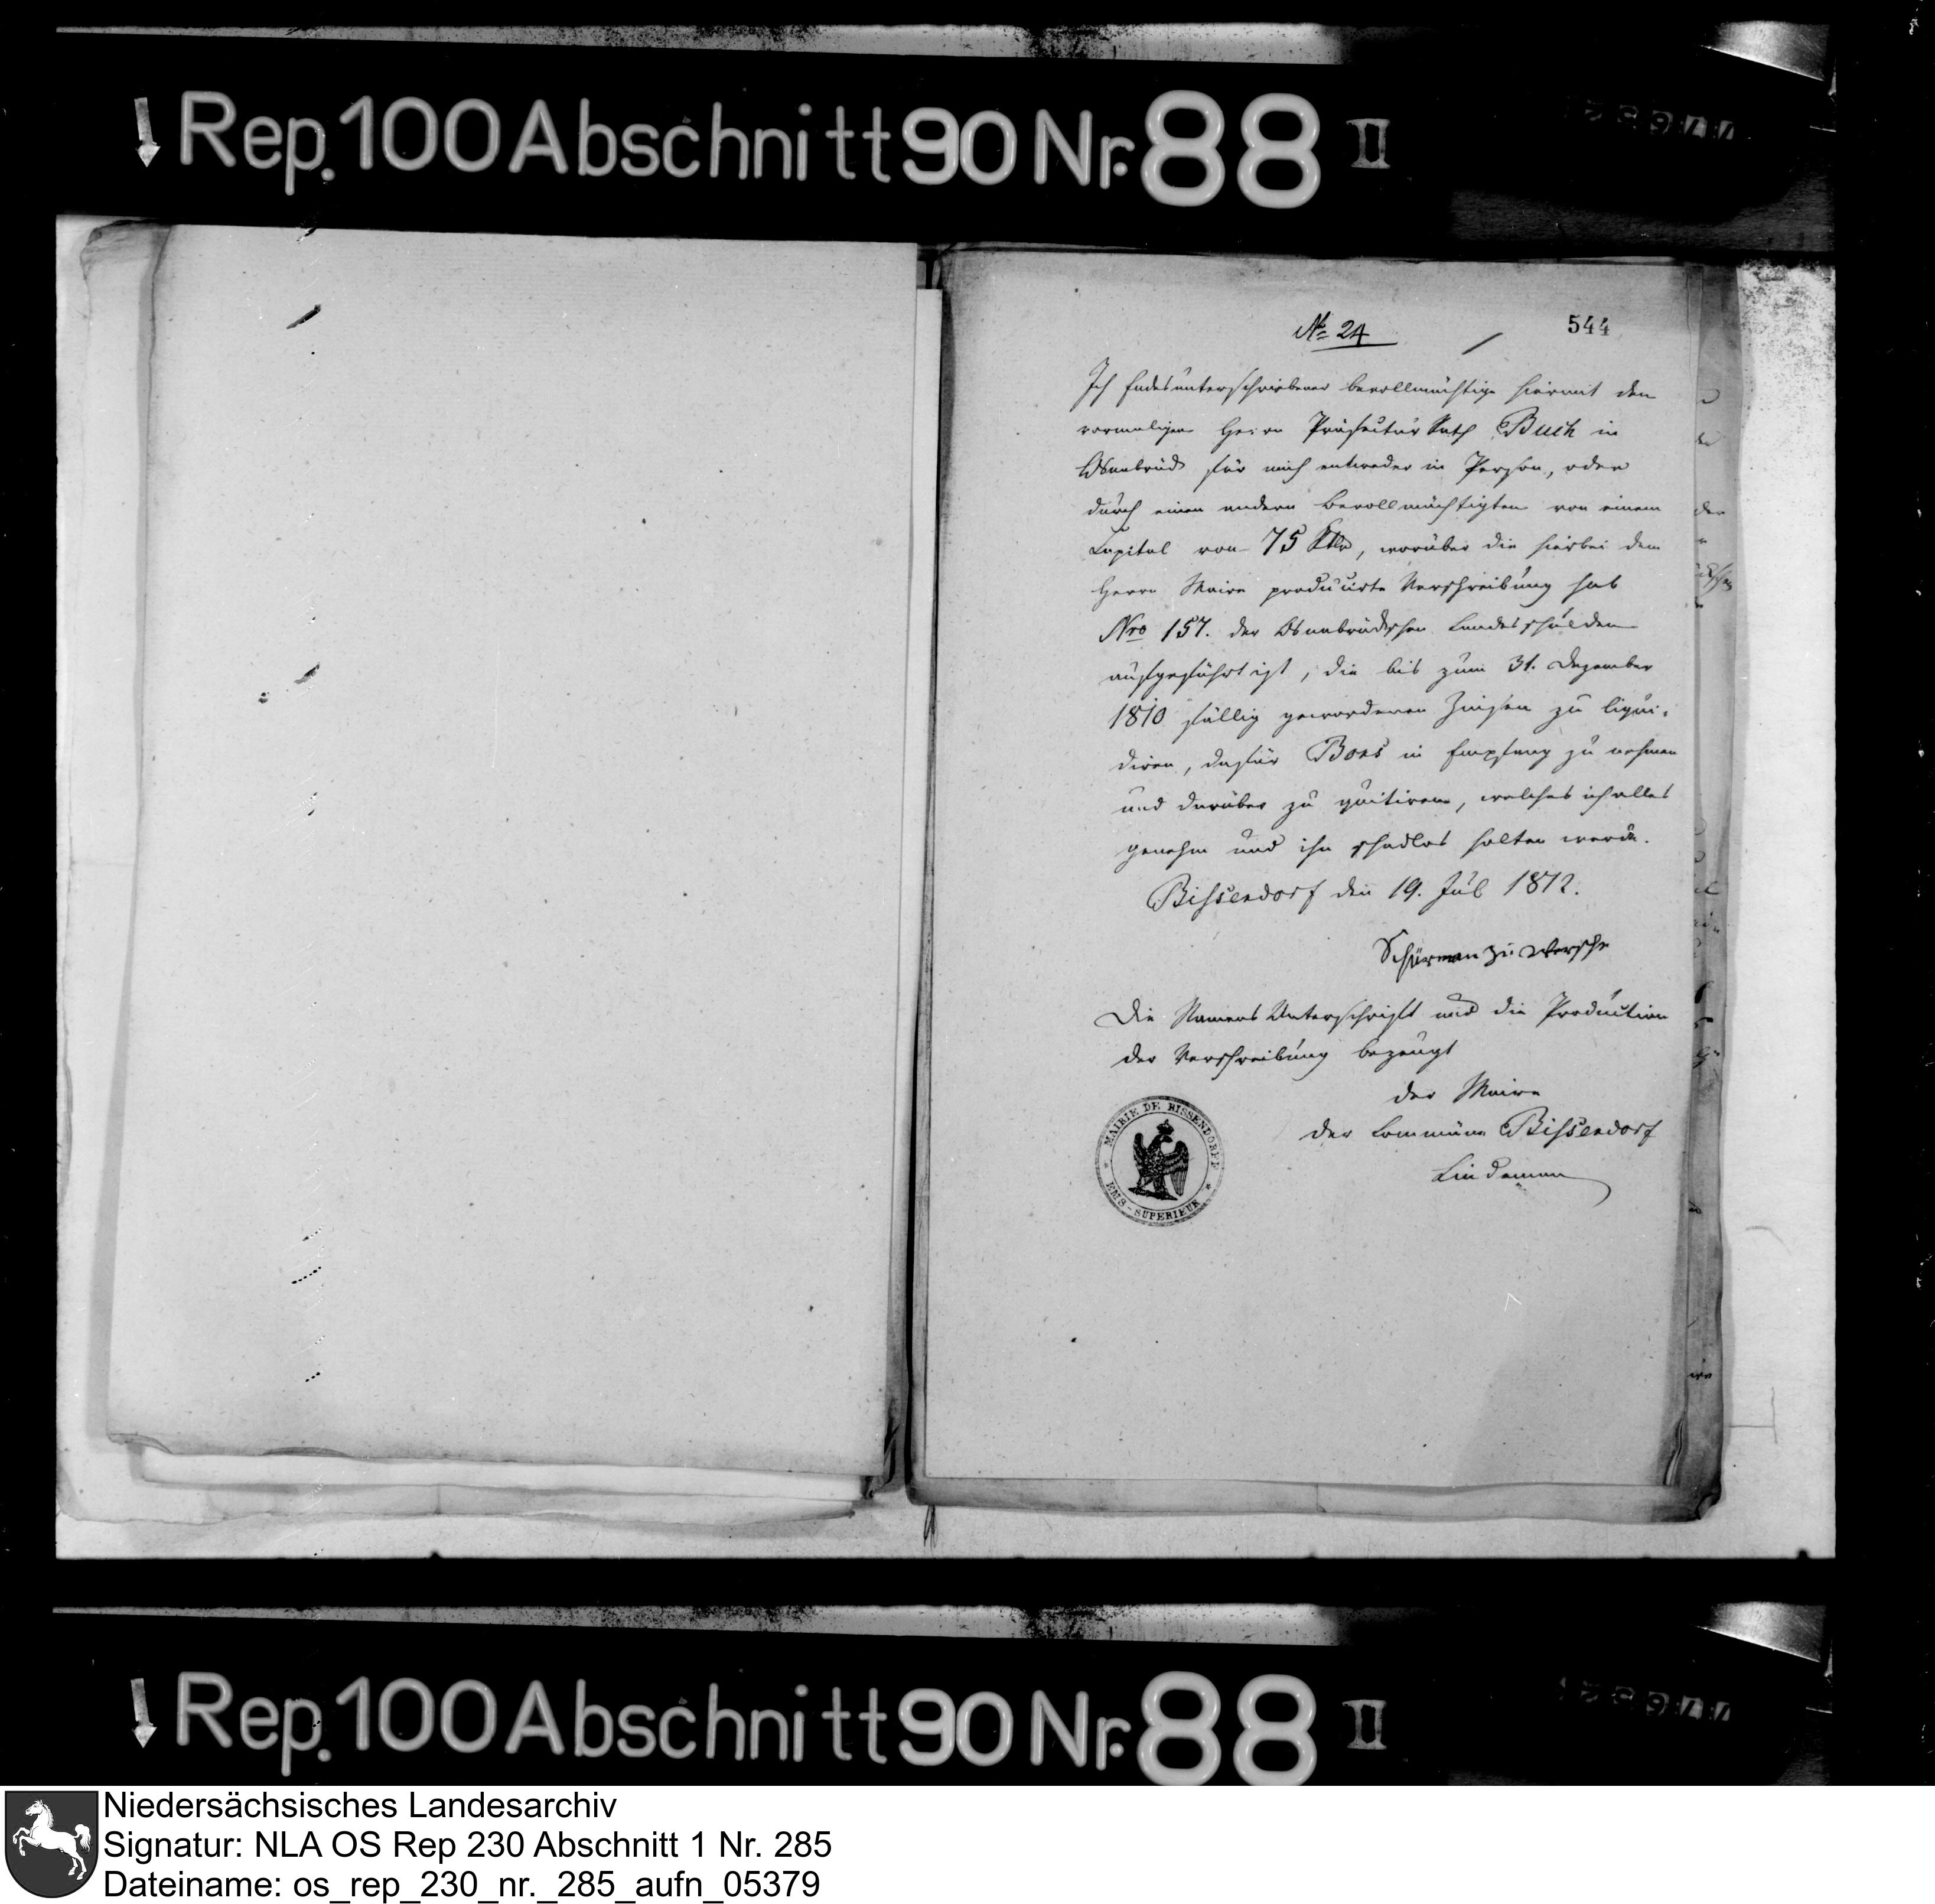 Rep. 100 Abschnitt 90 Nr. 88 II
№ 24
544
Ich Endesunterschriebener bevollmächtige hiermit den
vormaligen Herrn Präfectur Rath Buch in
Osnabrück für mich entweder in Person, oder
durch einen andern Bevollmächtigten von einem
Capital von 75 Rtlr, worüber die hierbei dem
Herrn Maire producirte Verschreibung sub
Nro 157. der Osnabrückschen Landesschulden
aufgeführt ist, die bis zum 31. Dezember
1810 fällig gewordenen Zinsen zu liqui-
diren, dafür Bons in Empfang zu nehmen
und darüber zu quitiren, welches ich alles
genehm und ihn schadlos halten werde.
Bissendorf den 19. Jul 1812.
Schürman zu
Die Namens Unterschrift und die Production
der Verschreibung bezeugt
der Maire
der Commune Bissendorf
Lindeman
MAIRIE DE BISSENDORFF
EMS-SUPERIEUR
Rep. 100 Abschnitt 90 Nr. 88 II
Niedersächsisches Landesarchiv
Signatur: NLA OS Rep 230 Abschnitt 1 Nr. 285
Dateiname: os_rep_230_nr._285_aufn_05379